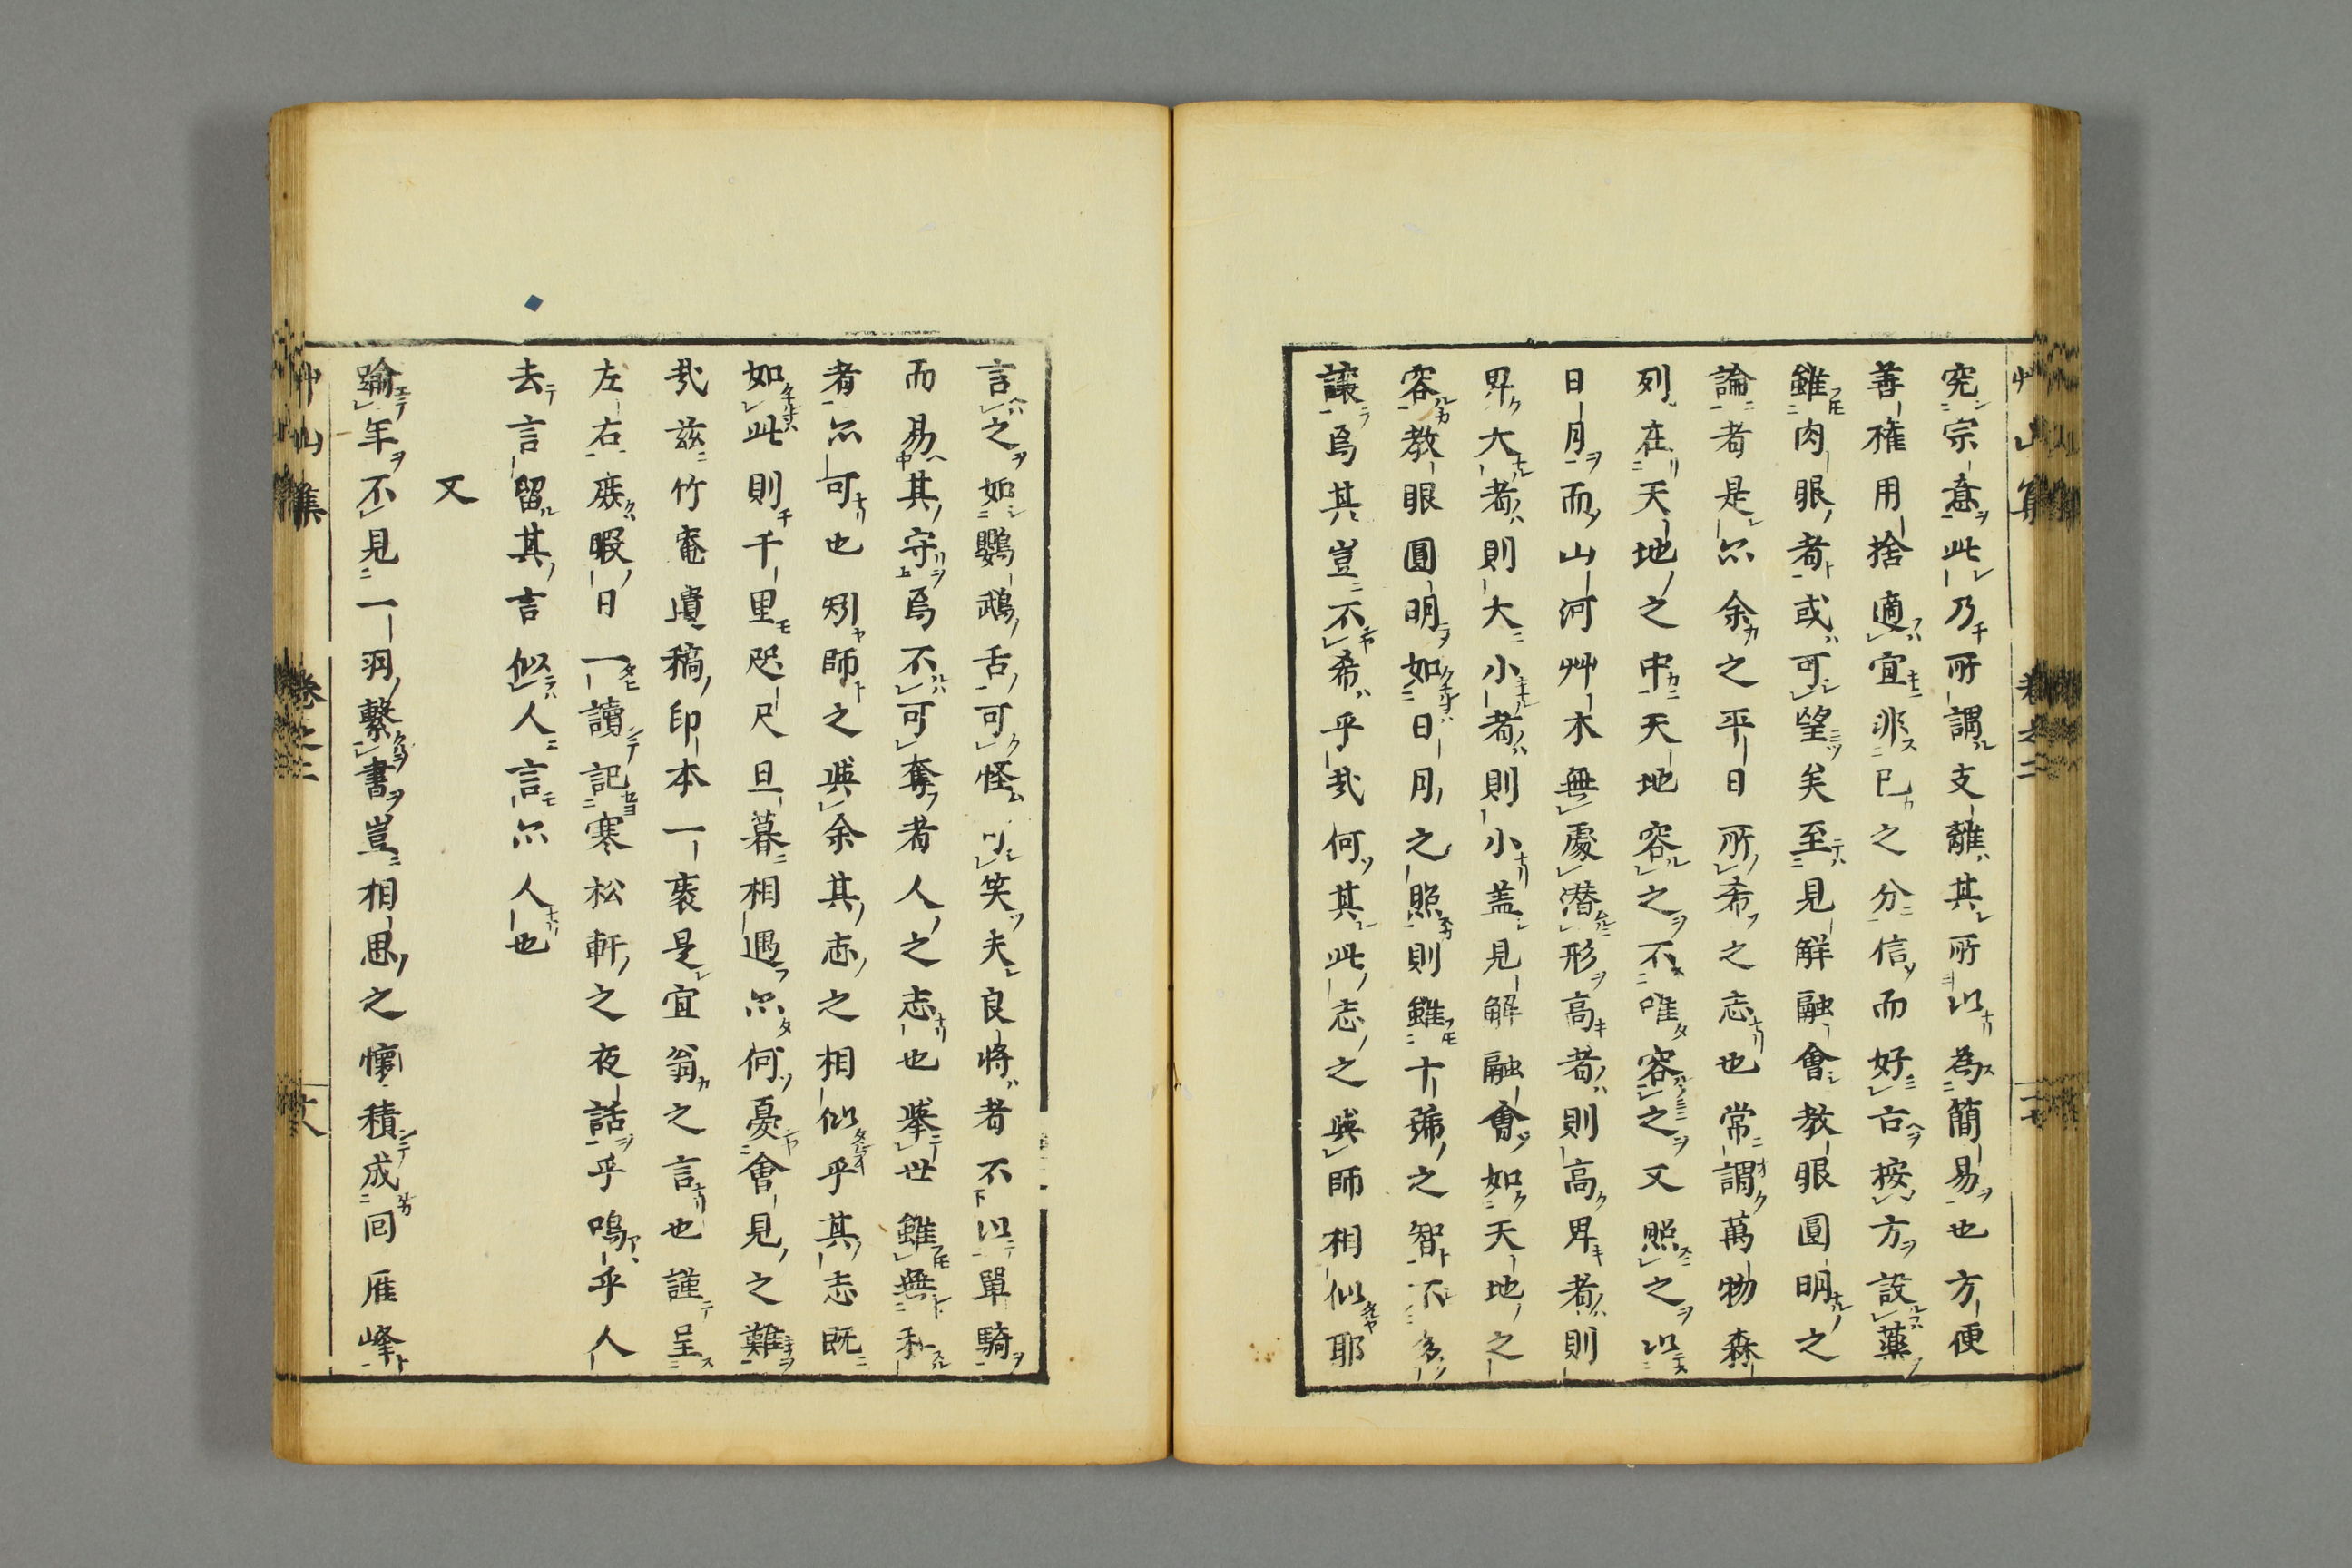 究宗意此乃所謂支離其所以為簡易也方便
善權用捨適宜非已之分信而好古按方設藥
雖肉眼者或可望矣至見解融會教眼圓明之
論者是尒余之平日所希之志也常謂萬物森
列在天地之中天地容之不唯容之又照之以
日月而山河艸木無處潜形高者則高卑者則
卑大者則大小者則小盖見解融會如天地之
容教眼圓明如日月之照則雖十號之智不多
讓焉其豈不希乎哉何其此志之與師相似耶
言之如鸚鵡舌可怪可笑夫良將者不以單騎
而易其守焉不可奪者人之志也舉世雖無私
者尒可也矧師之與余其志之相似乎其志既
如此則千里咫尺旦暮相遇尒何憂會見之難
哉兹竹菴遺稿印本一袠是宜翁之言也謹呈
左右廢暇日一讀記寒松軒之夜話乎嗚乎人
去言留其言似人言尒人也
又
踰年不見一羽繫書豈相思之懷積成囘雁峰
艸山集 卷之二